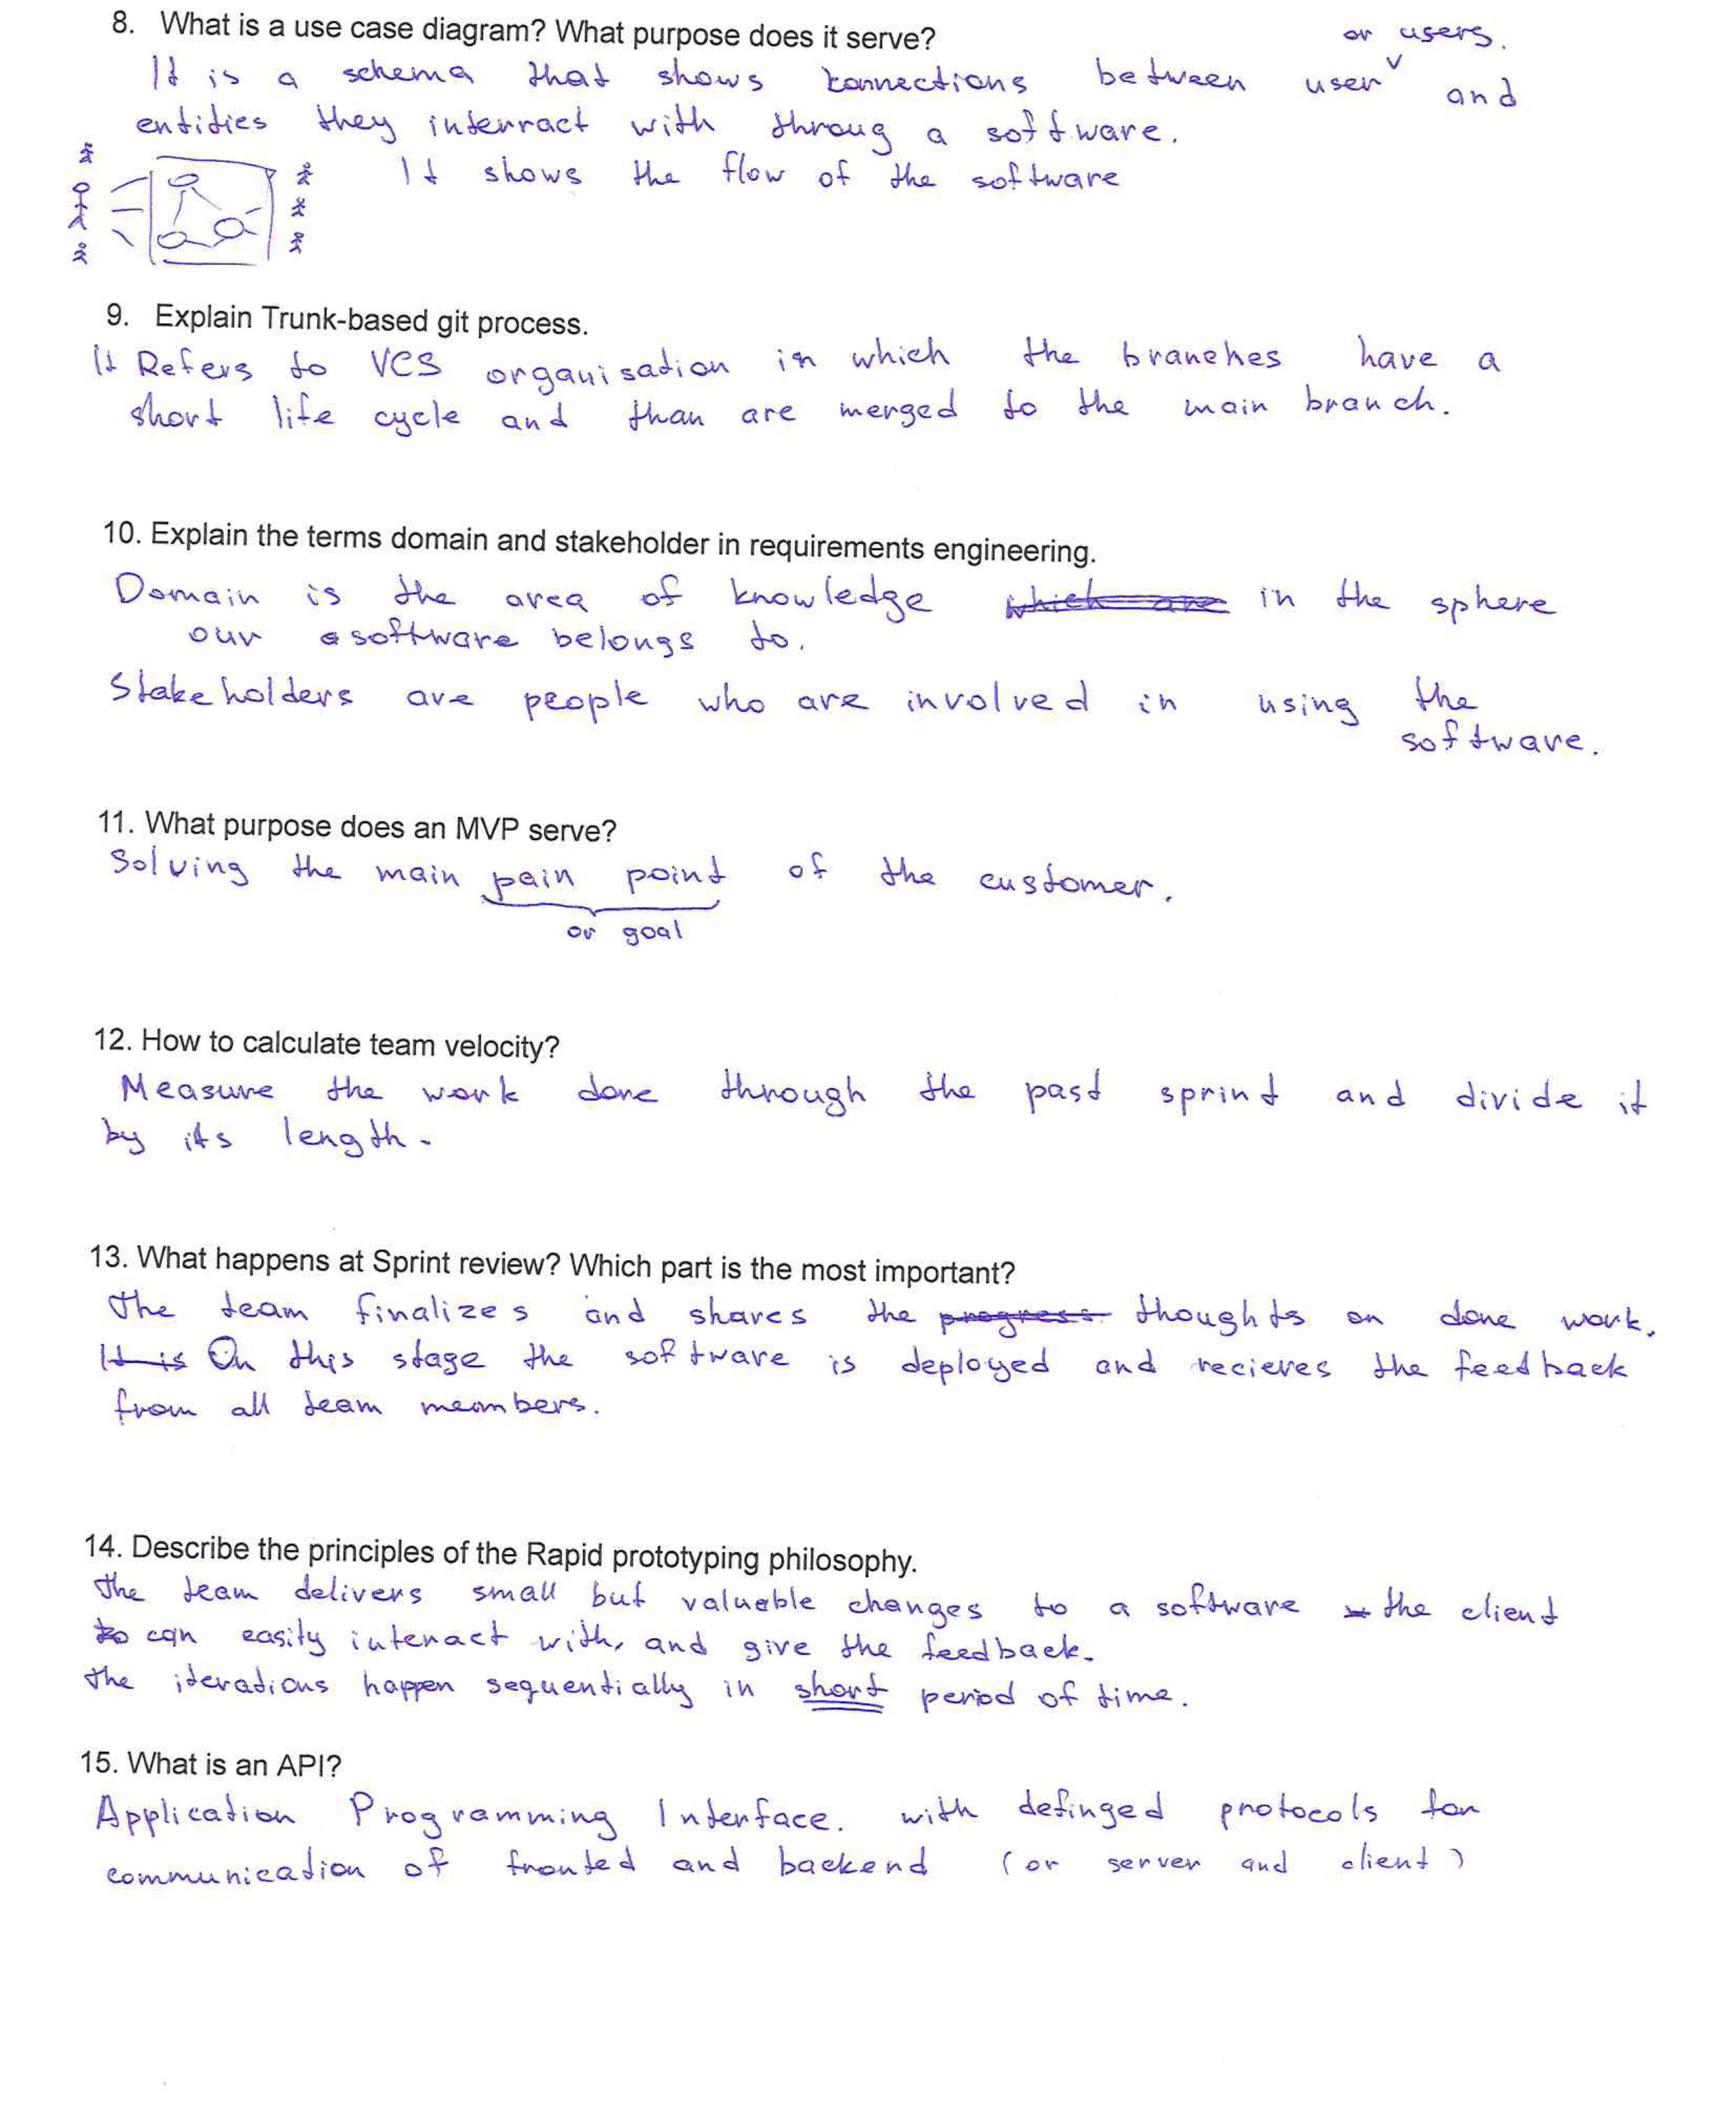 8. What is a use case diagram? What purpose does it serve?
or users.
It is a schema that shows connections between user and
entities they interract with throug a software.
It shows the flow of the software
9. Explain Trunk-based git process.
It Refers to VCS organisation in which the branches have a
short life cycle and than are merged to the main branch.
10. Explain the terms domain and stakeholder in requirements engineering.
Domain is the area of knowledge which are in the sphere
our software belongs to.
Stakeholders are people who are involved in using the
software.
11. What purpose does an MVP serve?
Solving the main pain point of the customer.
or goal
12. How to calculate team velocity?
Measure the work done through the past sprint and divide it
by its length.
13. What happens at Sprint review? Which part is the most important?
The team finalizes and shares the progress thoughts on done work.
It is On this stage the software is deployed and recieves the feedback
from all team meambers.
14. Describe the principles of the Rapid prototyping philosophy.
The team delivers small but valuable changes to a software the client
to can easily interact with, and give the feedback.
The iterations happen sequentially in short period of time.
15. What is an API?
Application Programming Interface. with definged protocols for
communication of fronted and backend (or server and client)